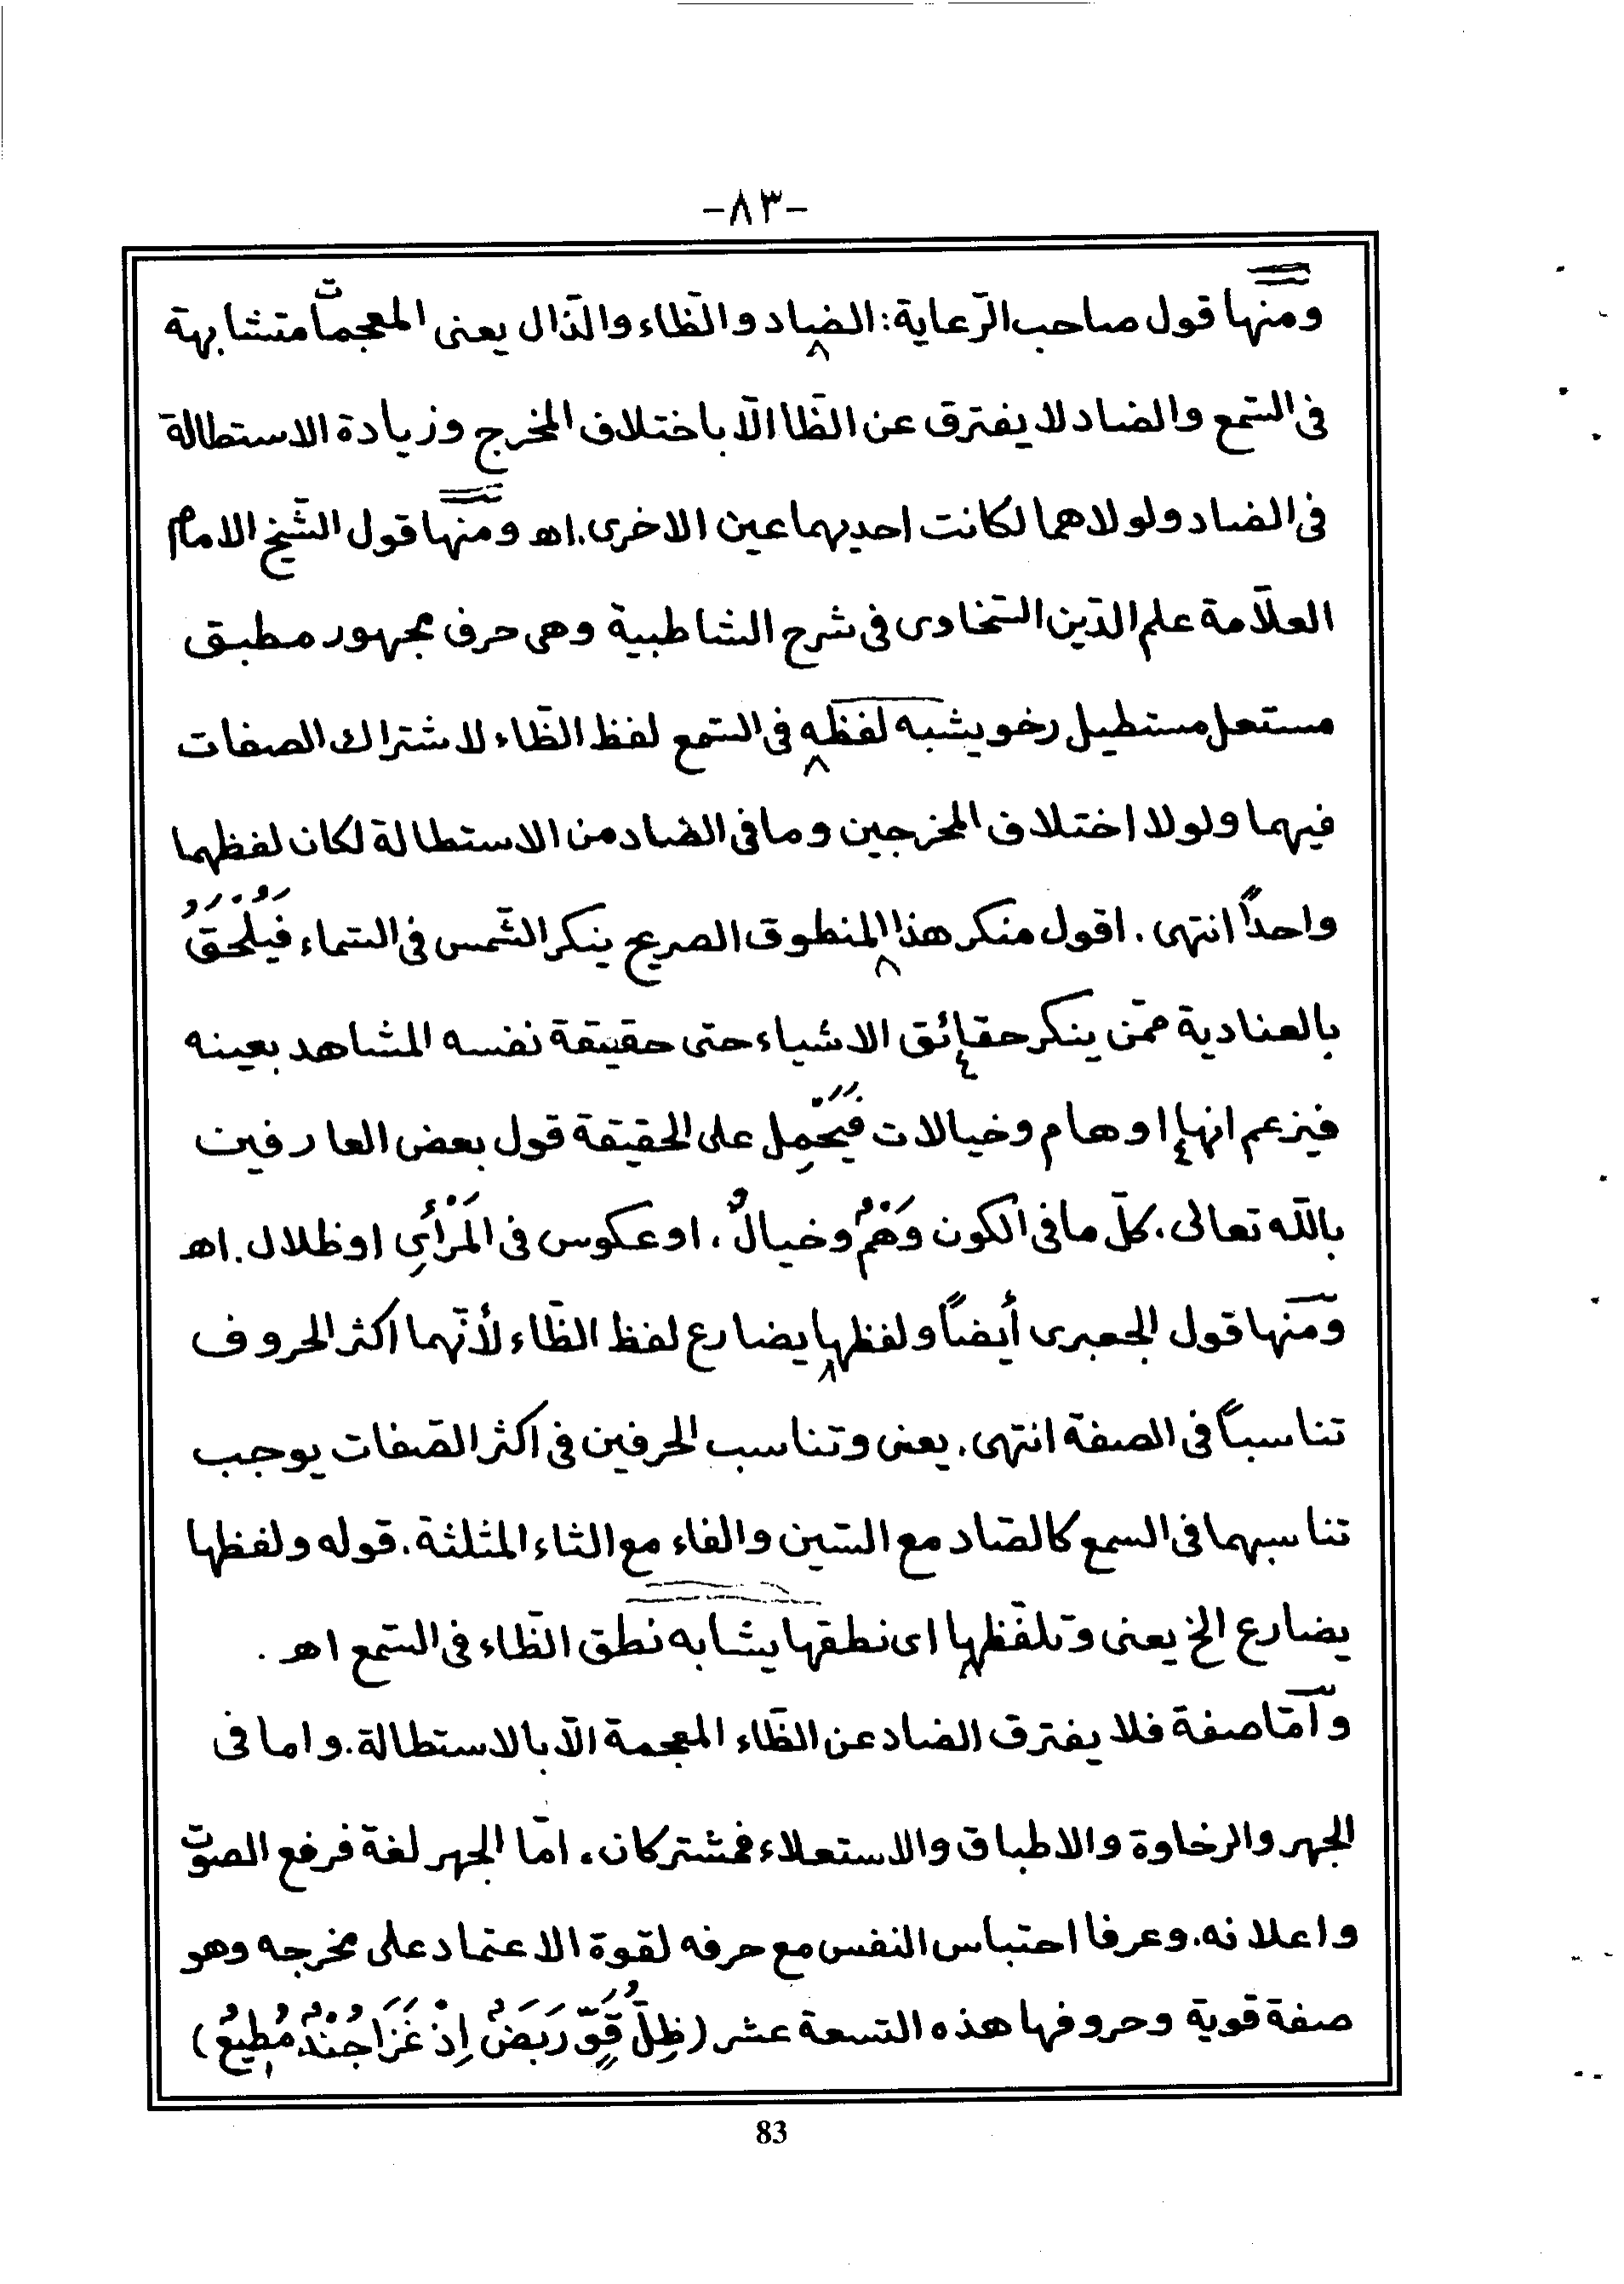 -٨٣-
ومنها قول صاحب الرّعاية: الضاد والظّاء والذّال يعنى المعجمات متشابهة
فى السّمع والضاد لا يفترق عن الظّا الّا باختلاف المخرج وزيادة الاستطالة
فى الضاد ولولاهما لكانت احديهما عين الاخرى.اه ومنها قول الشّيخ الامام
العلّامة علم الدّين السّخاوى فى شرح الشاطبية وهى حرف مجهور مطبق
مستعل مستطيل رخو يشبه لفظه فى السّمع لفظ الظّاء لاشتراك الصفات
فيهما ولولا اختلاف المخرجين وما فى الضاد من الاستطالة لكان لفظهما
واحداً انتهى. اقول منكر هذا المنطوق الصريح ينكر الشّمس فى السّماء فَيُلْحَقُ
بالعنادية ممّن ينكر حقائق الاشياء حتى حقيقة نفسه المشاهد بعينه
فيزعم انها اوهام وخيالات فَيَحْمِل على الحقيقة قول بعض العارفين
بالله تعالى. كلّ ما فى الكون وَهْمٌ وخيالٌ، او عكوس فى المَرْأَىِ او ظلال.اه
ومنها قول الجعبرى أيضاً ولفظها يضارع لفظ الظّاء لأنّهما اكثر الحروف
تناسباً فى الصفة انتهى. يعنى وتناسب الحرفين فى اكثر الصّفات يوجب
تناسبهما فى السمع كالصّاد مع السّين والفاء مع الثاء المثلثة. قوله ولفظها
يضارع الخ يعنى وتلفّظها اى نطقها يشابه نطق الظّاء فى السّمع اه.
وأمّا صفة فلا يفترق الضاد عن الظّاء المعجمة الّا بالاستطالة. واما فى
الجهر والرخاوة والاطباق والاستعلاء فمشتركان. امّا الجهر لغة فرفع الصوت
واعلانه. وعرفا احتباس النفس مع حرفه لقوة الاعتماد على مخرجه وهو
صفة قوية وحروفها هذه التسعة عشر (ظِلُّ قَوٍّ رَبَضٌ اِذْ غَزَا جُنْدٌ مُطِيعٌ)
83